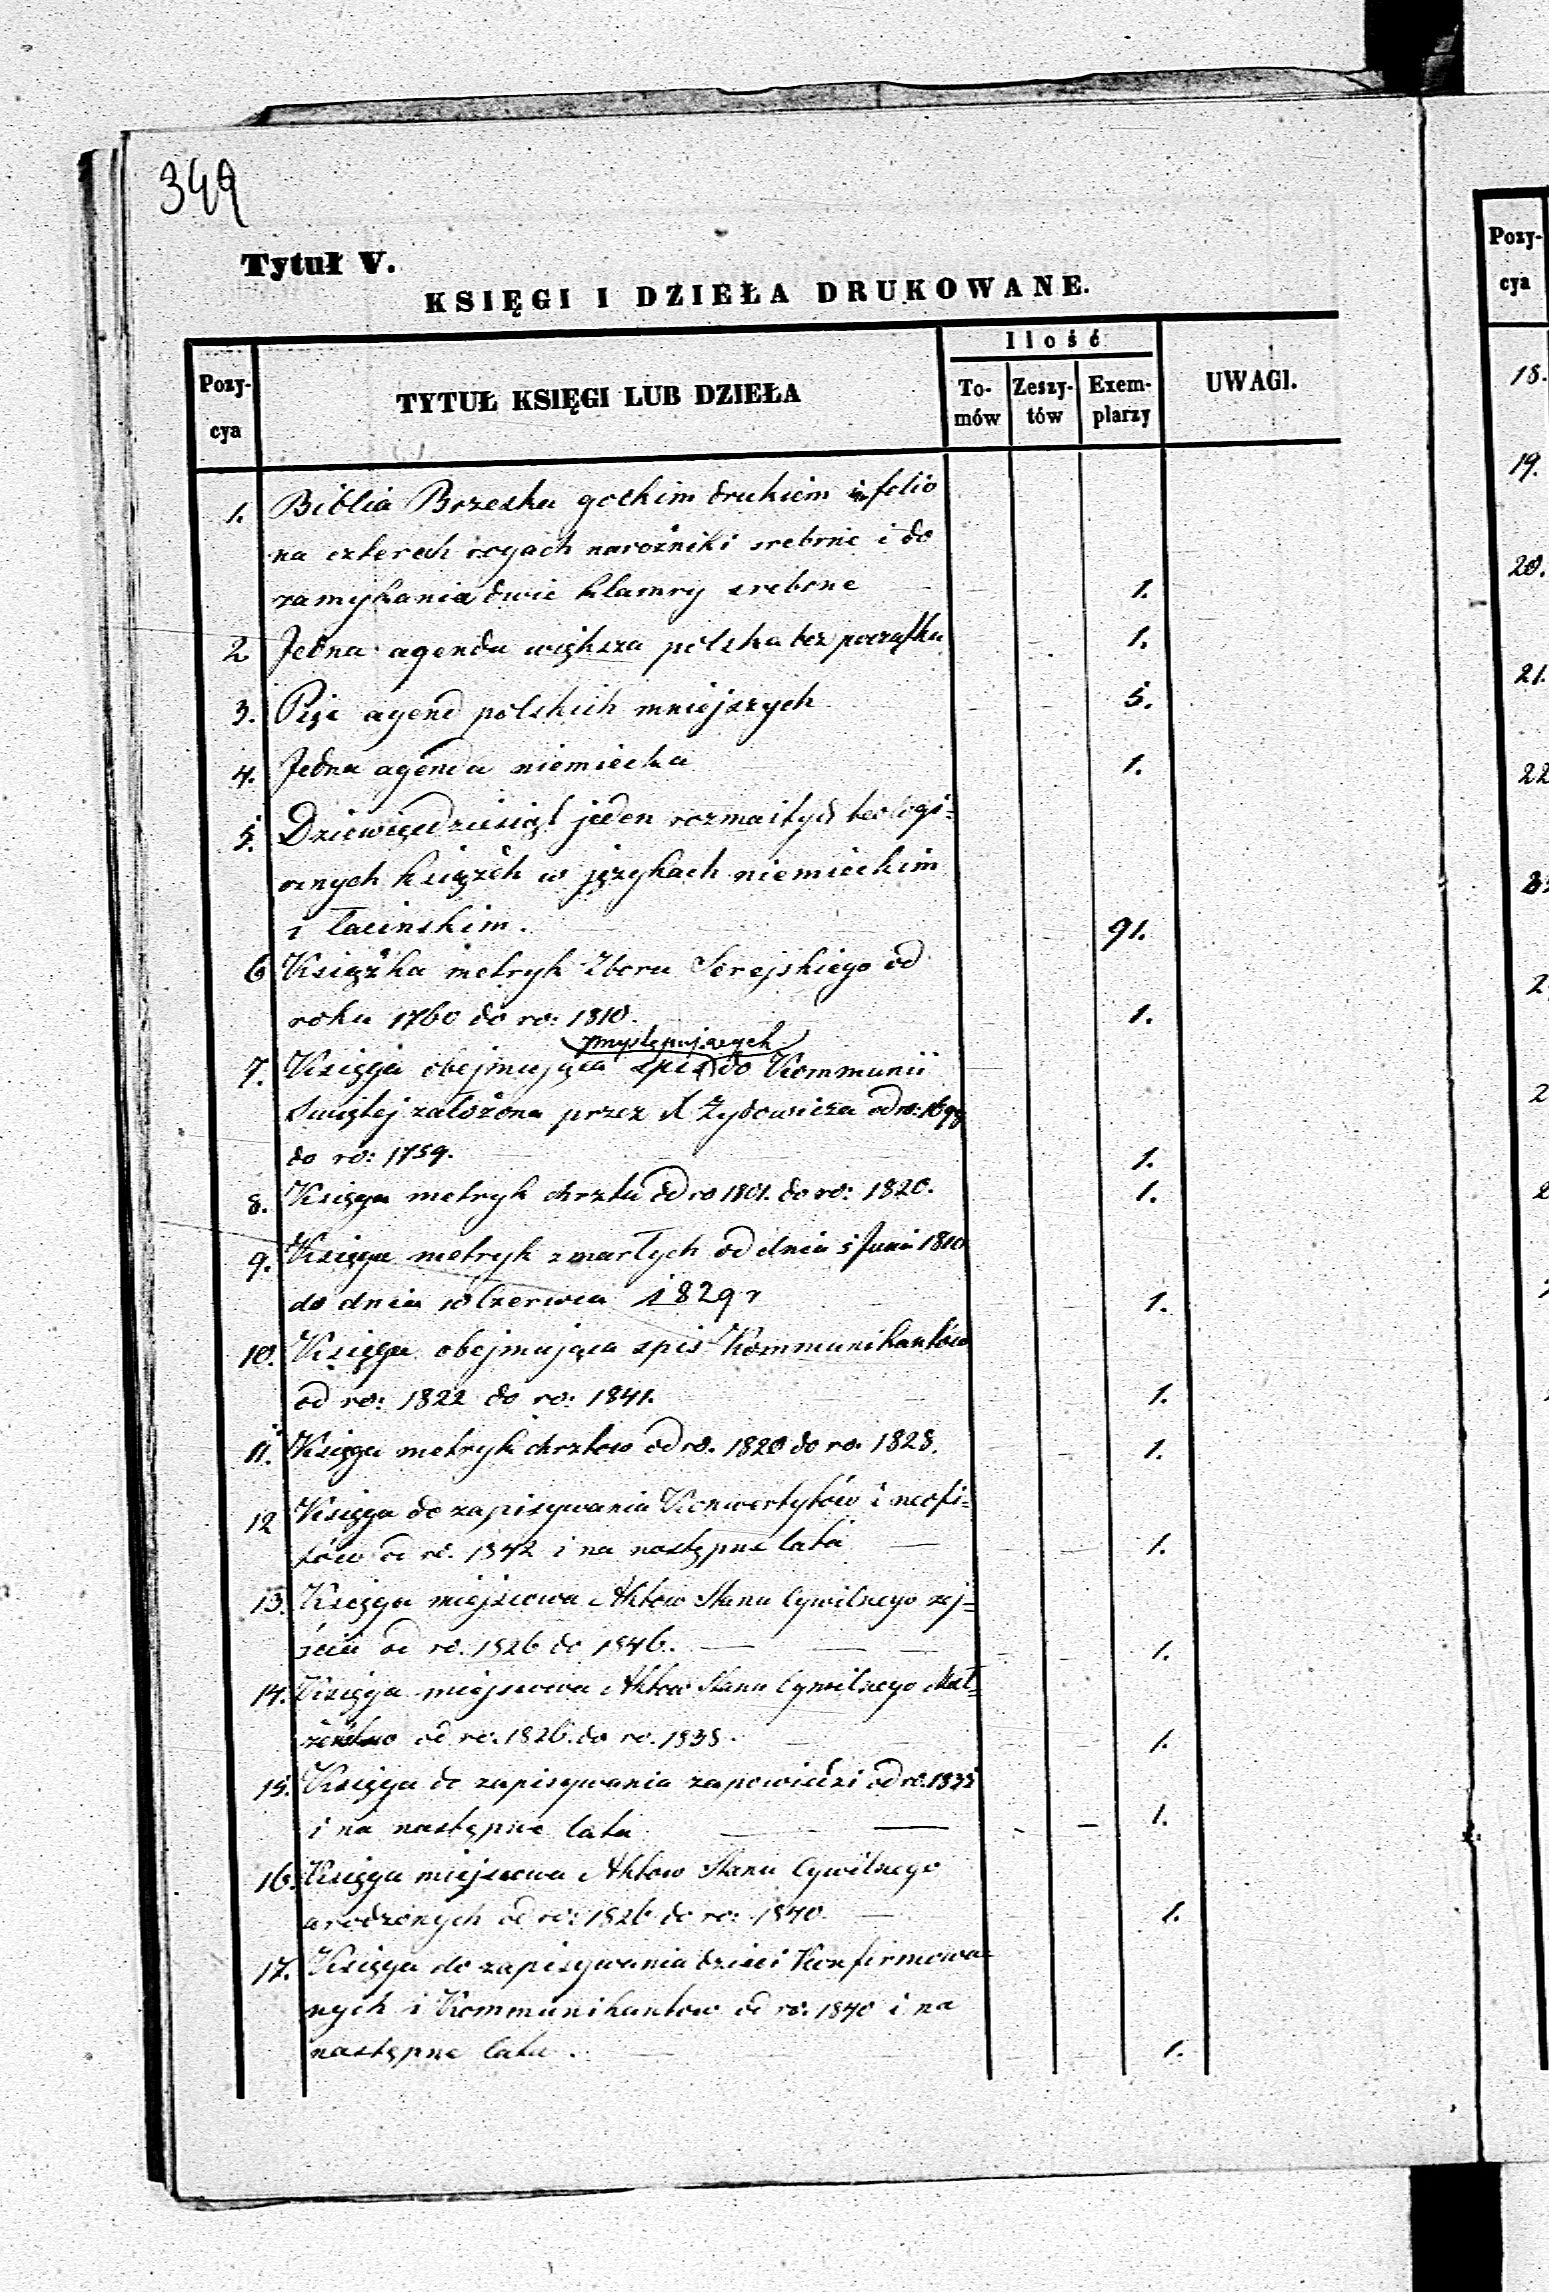 349
Tytuł V.
KSIĘGI I DZIEŁA DRUKOWANE.
Pozy-
cya
TYTUŁ KSIĘGI LUB DZIEŁA
Ilość
To-
mów
Zeszy-
tów
Exem-
plarzy
UWAGI.
1. Biblia Brzeska gockim drukiem in folio
na czterech rogach narożniki srebrne i do
zamykania dwie klamry srebrne 1.
2 Jedna agenda większa polska bez początku 1.
3. Pięć agend polskich mniejszych 5.
4. Jedna agenda niemiecka 1.
5. Dziewięćdziesiąt jeden rozmaitych teologi=
cznych książek w językach niemieckim
i łacińskim. 91.
6 Książka metryk Zboru Serejskiego od
roku 1760 do ro: 1810. 1.
przystępujących
7. Księga obejmująca spis do Kommunii
Świętej założona przez X Żydowicza od ro: 1699
do ro: 1759. 1.
8. Księga metryk chrztu od ro 1801. do ro: 1820. 1.
9. Księga metryk zmarłych od dnia 5 Junii 1810
do dnia 10 Czerwca 1829 r 1.
10. Księga obejmująca spis Kommunikantów
od ro: 1822 do ro: 1841. 1.
11. Księga metryk chrztów od ro. 1820 do ro. 1828. 1.
12 Księga do zapisywania Konwertytów i neofi=
tów od ro. 1842 i na następne lata 1.
13. Księga miejscowa Aktow Stanu Cywilnego zej=
ścia od ro. 1826 do 1846. 1.
14. Księga miejscowa Aktow Stanu Cywilnego Mał=
żeństwo od ro. 1826. do ro. 1838. 1.
15. Księga do zapisywania zapowiedzi od ro. 1835
i na następne lata 1.
16. Księga miejscowa Aktow Stanu Cywilnego
urodzonych od ro: 1826 do ro: 1840. 1.
17. Księga do zapisywania dzieci Konfirmowa=
nych i Kommunikantow od ro. 1840 i na
następne lata. 1.
Pozy-
cya
18.
19.
20.
21.
22